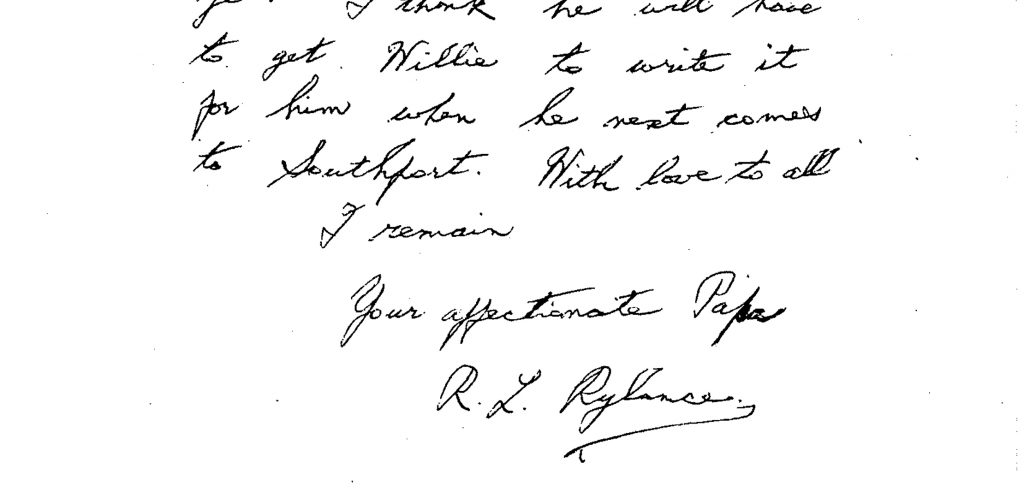 I think he will have
to get Willie to write it
for him when he next comes
to Southport. With love to all
I remain
Your affectionate Papa
R. L. Rylance.